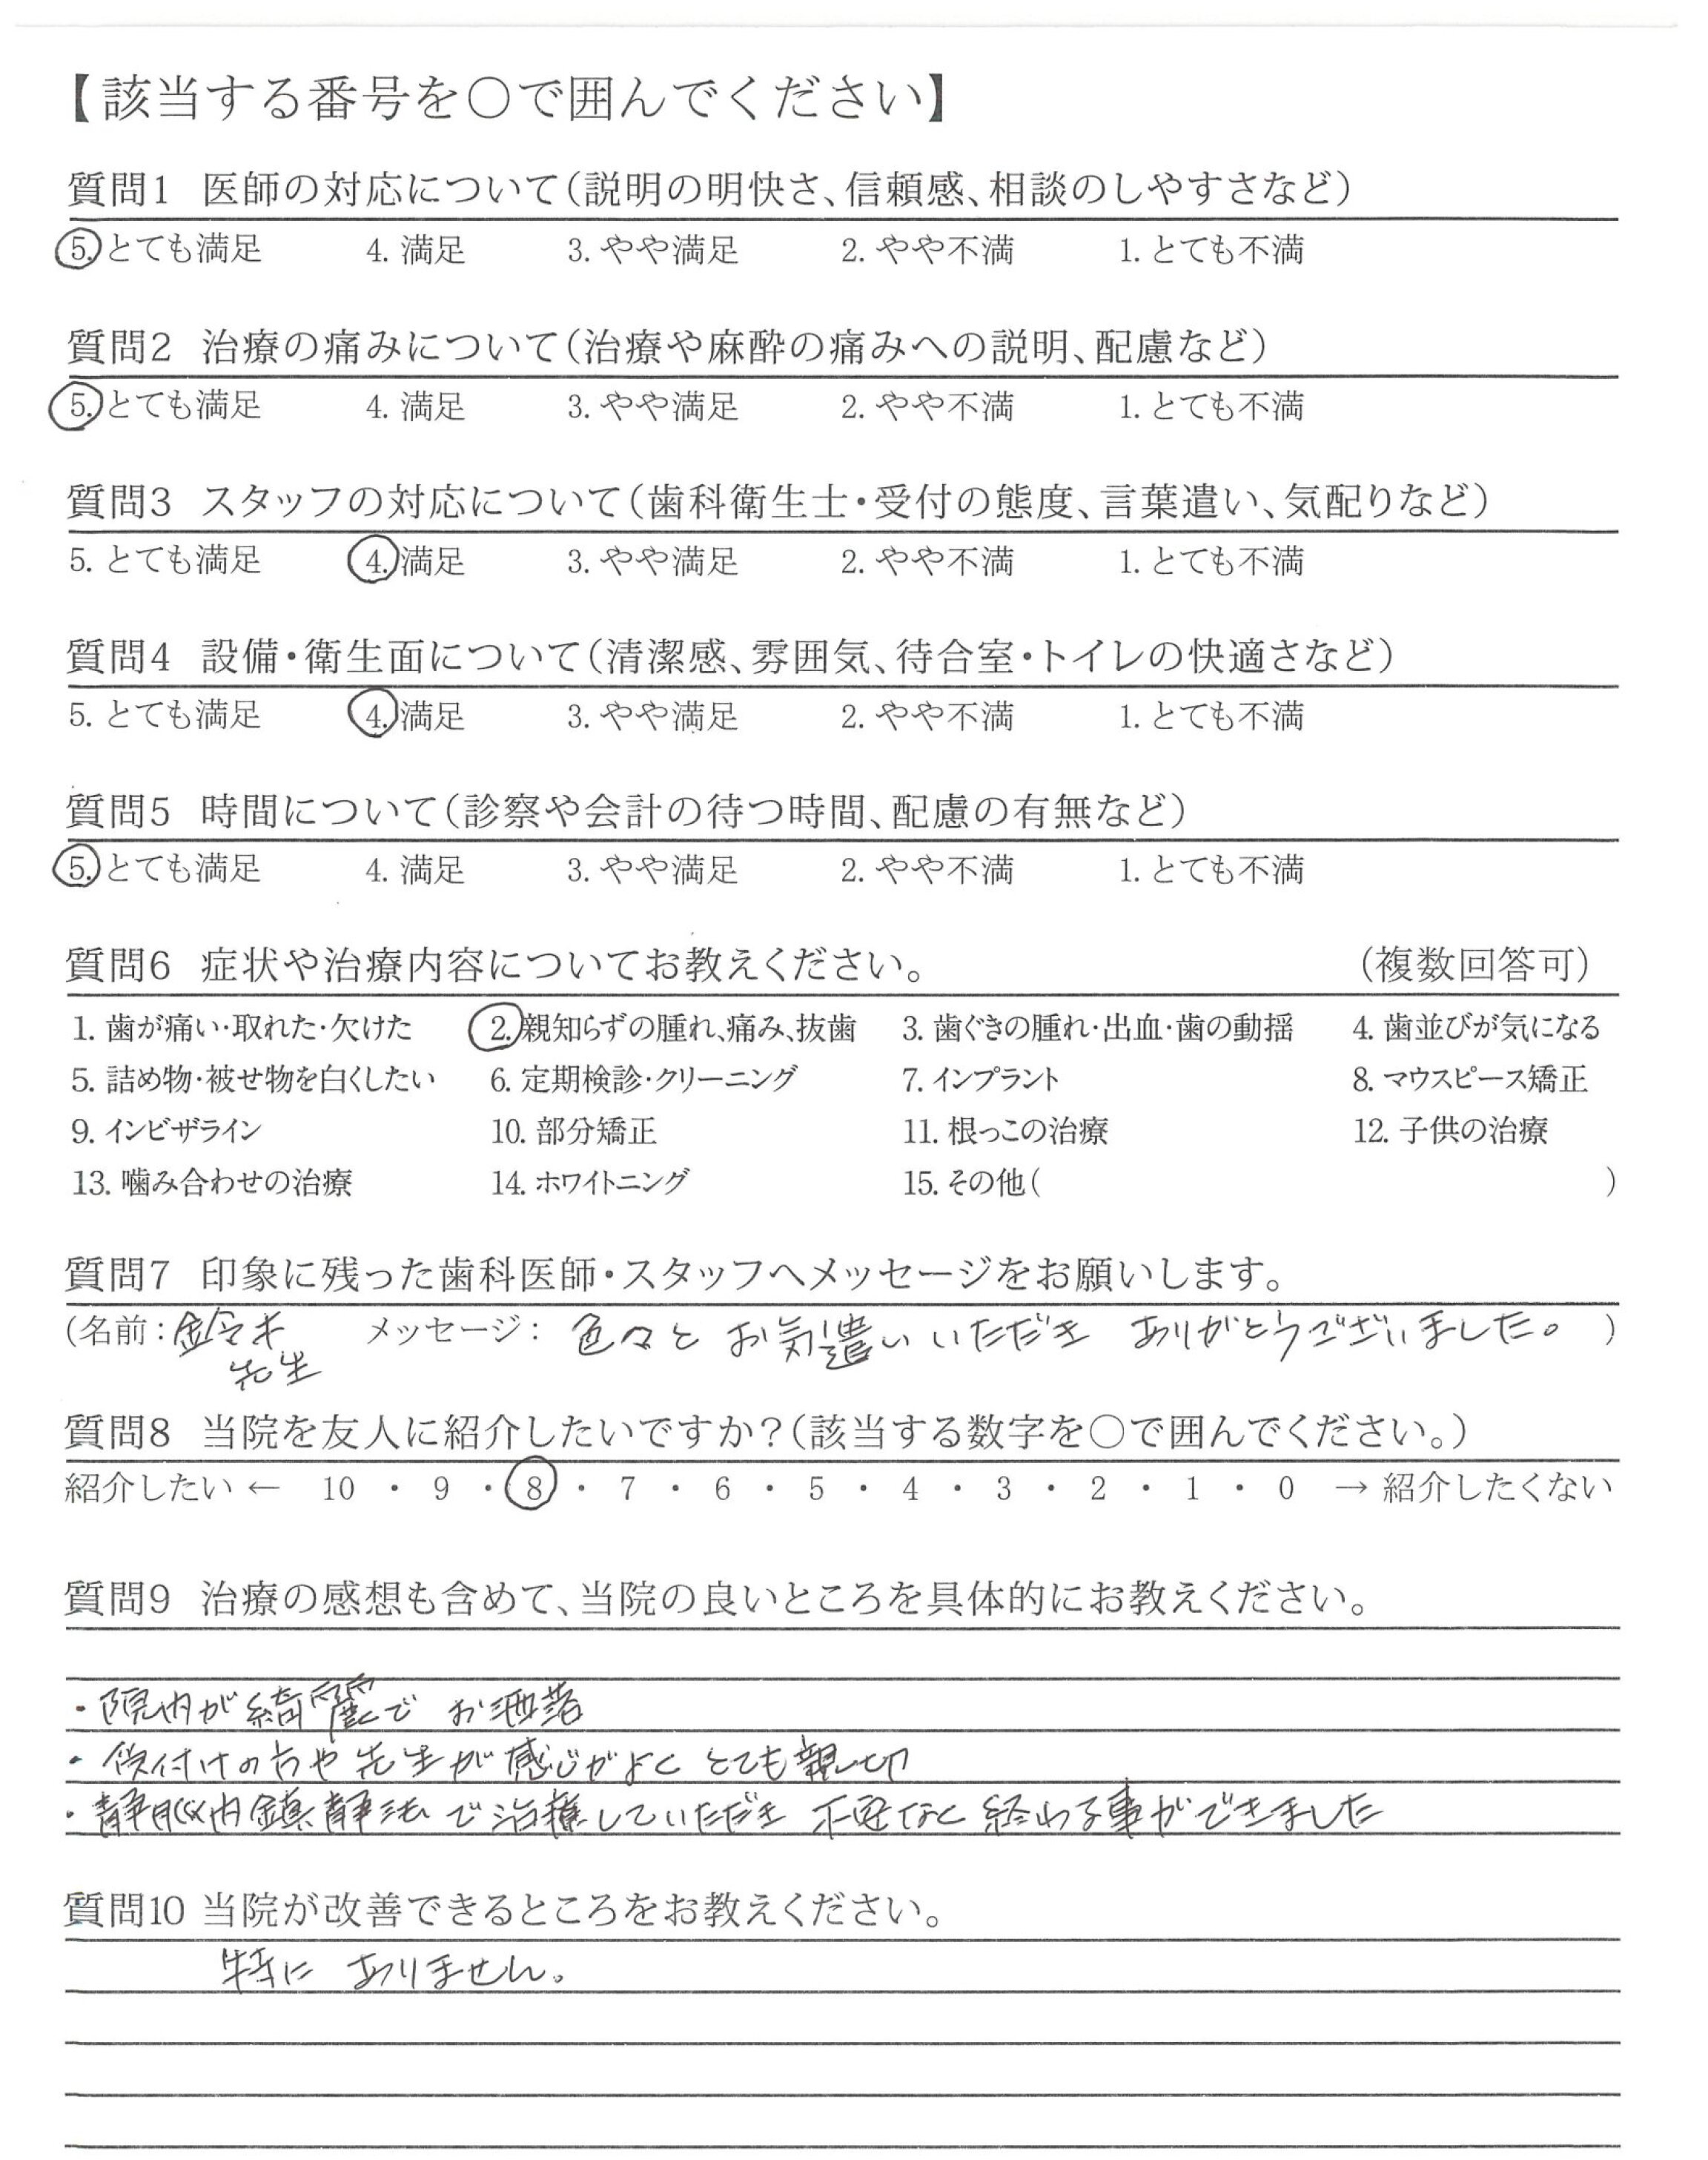 【該当する番号を○で囲んでください】
質問1 医師の対応について(説明の明快さ、信頼感、相談のしやすさなど)
5. とても満足 4. 満足 3. やや満足 2. やや不満 1. とても不満
質問2 治療の痛みについて(治療や麻酔の痛みへの説明、配慮など)
5. とても満足 4. 満足 3. やや満足 2. やや不満 1. とても不満
質問3 スタッフの対応について(歯科衛生士・受付の態度、言葉遣い、気配りなど)
5. とても満足 4. 満足 3. やや満足 2. やや不満 1. とても不満
質問4 設備・衛生面について(清潔感、雰囲気、待合室・トイレの快適さなど)
5. とても満足 4. 満足 3. やや満足 2. やや不満 1. とても不満
質問5 時間について(診察や会計の待つ時間、配慮の有無など)
5. とても満足 4. 満足 3. やや満足 2. やや不満 1. とても不満
質問6 症状や治療内容についてお教えください。 (複数回答可)
1. 歯が痛い・取れた・欠けた 2. 親知らずの腫れ、痛み、抜歯 3. 歯ぐきの腫れ・出血・歯の動揺 4. 歯並びが気になる
5. 詰め物・被せ物を白くしたい 6. 定期検診・クリーニング 7. インプラント 8. マウスピース矯正
9. インビザライン 10. 部分矯正 11. 根っこの治療 12. 子供の治療
13. 噛み合わせの治療 14. ホワイトニング 15. その他( )
質問7 印象に残った歯科医師・スタッフへメッセージをお願いします。
(名前:鈴木 メッセージ: 色々と お気遣いいただき ありがとうございました。 )
先生
質問8 当院を友人に紹介したいですか?(該当する数字を○で囲んでください。)
紹介したい ← 10 ・ 9 ・ 8 ・ 7 ・ 6 ・ 5 ・ 4 ・ 3 ・ 2 ・ 1 ・ 0 → 紹介したくない
質問9 治療の感想も含めて、当院の良いところを具体的にお教えください。
・院内が綺麗で お洒落
・付けの方や先生が感じがよく とても親切
・静脈内鎮静法で治療していただき なく 終わる事ができました
質問10 当院が改善できるところをお教えください。
特に ありません。